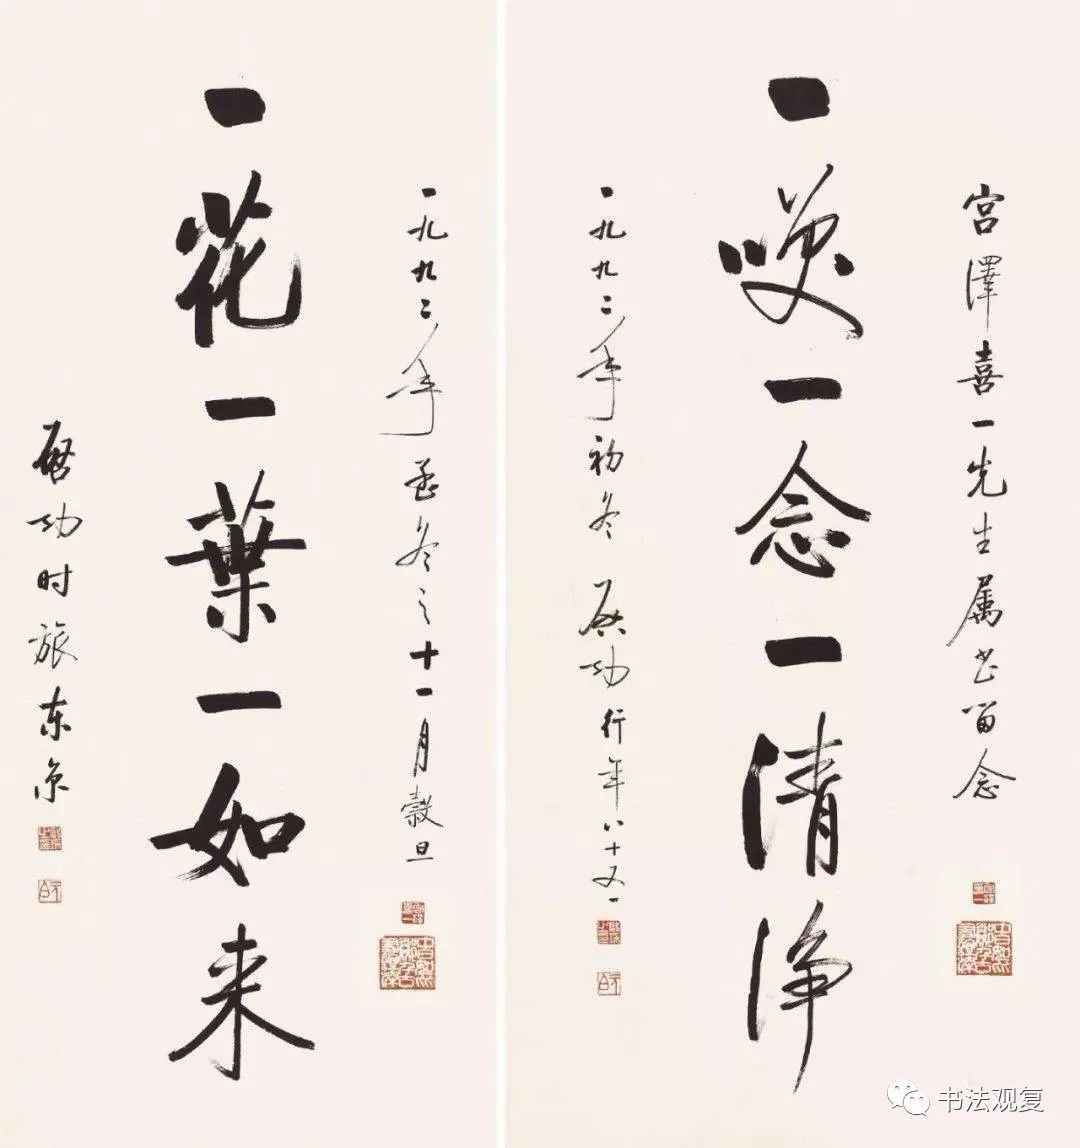 宫澤喜一先生属书留念
一咲一念一清净
一九九二年初冬 啓功行年八十又一
一九九二年孟冬之十一月穀旦
一花一葉一如来
啓功时旅东京
书法观复